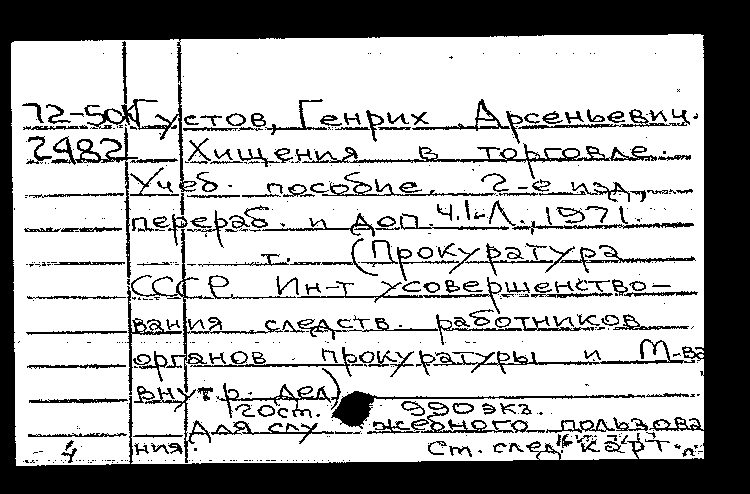 72-50к Густов, Генрих Арсеньевич.
2482 Хищения в торговле.
Учеб. пособие. 2-е изд.,
перераб. и доп. Ч.1- Л., 1971.
т. (Прокуратура
СССР. Ин-т усовершенство-
вания следств. работников
органов прокуратуры и М-ва
внутр. дел)
20ст. 990экз.
Для служебного пользова
4 ния. Ст. след. карт.